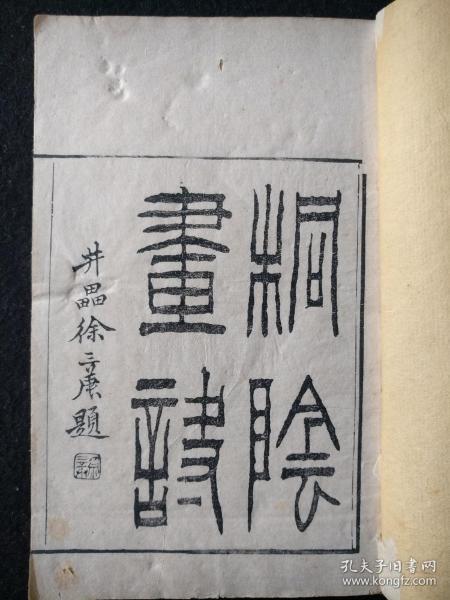 桐陰
畫訣
井罍徐三庚題
孔夫子旧书网
www.kongfz.com